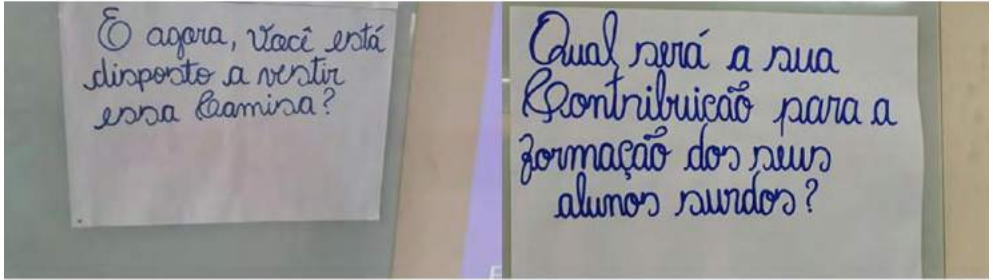 E agora, Você está
disposto a vestir
essa Camisa?
Qual será a sua
Contribuição para a
formação dos seus
alunos surdos?